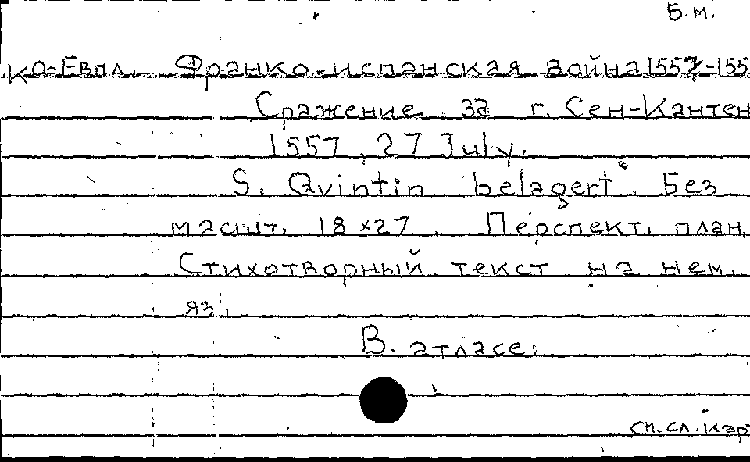 Б.м.
Ко-Евпл. Франко-испанская война 1557-155
Сражение за г. Сен-Кантен
1557, 27 July.
S. Qvintin belagert. Без
масшт. 18x27. Перспект. план.
Стихотворный текст на нем.
яз.
В. атласе:
см. сл. кар